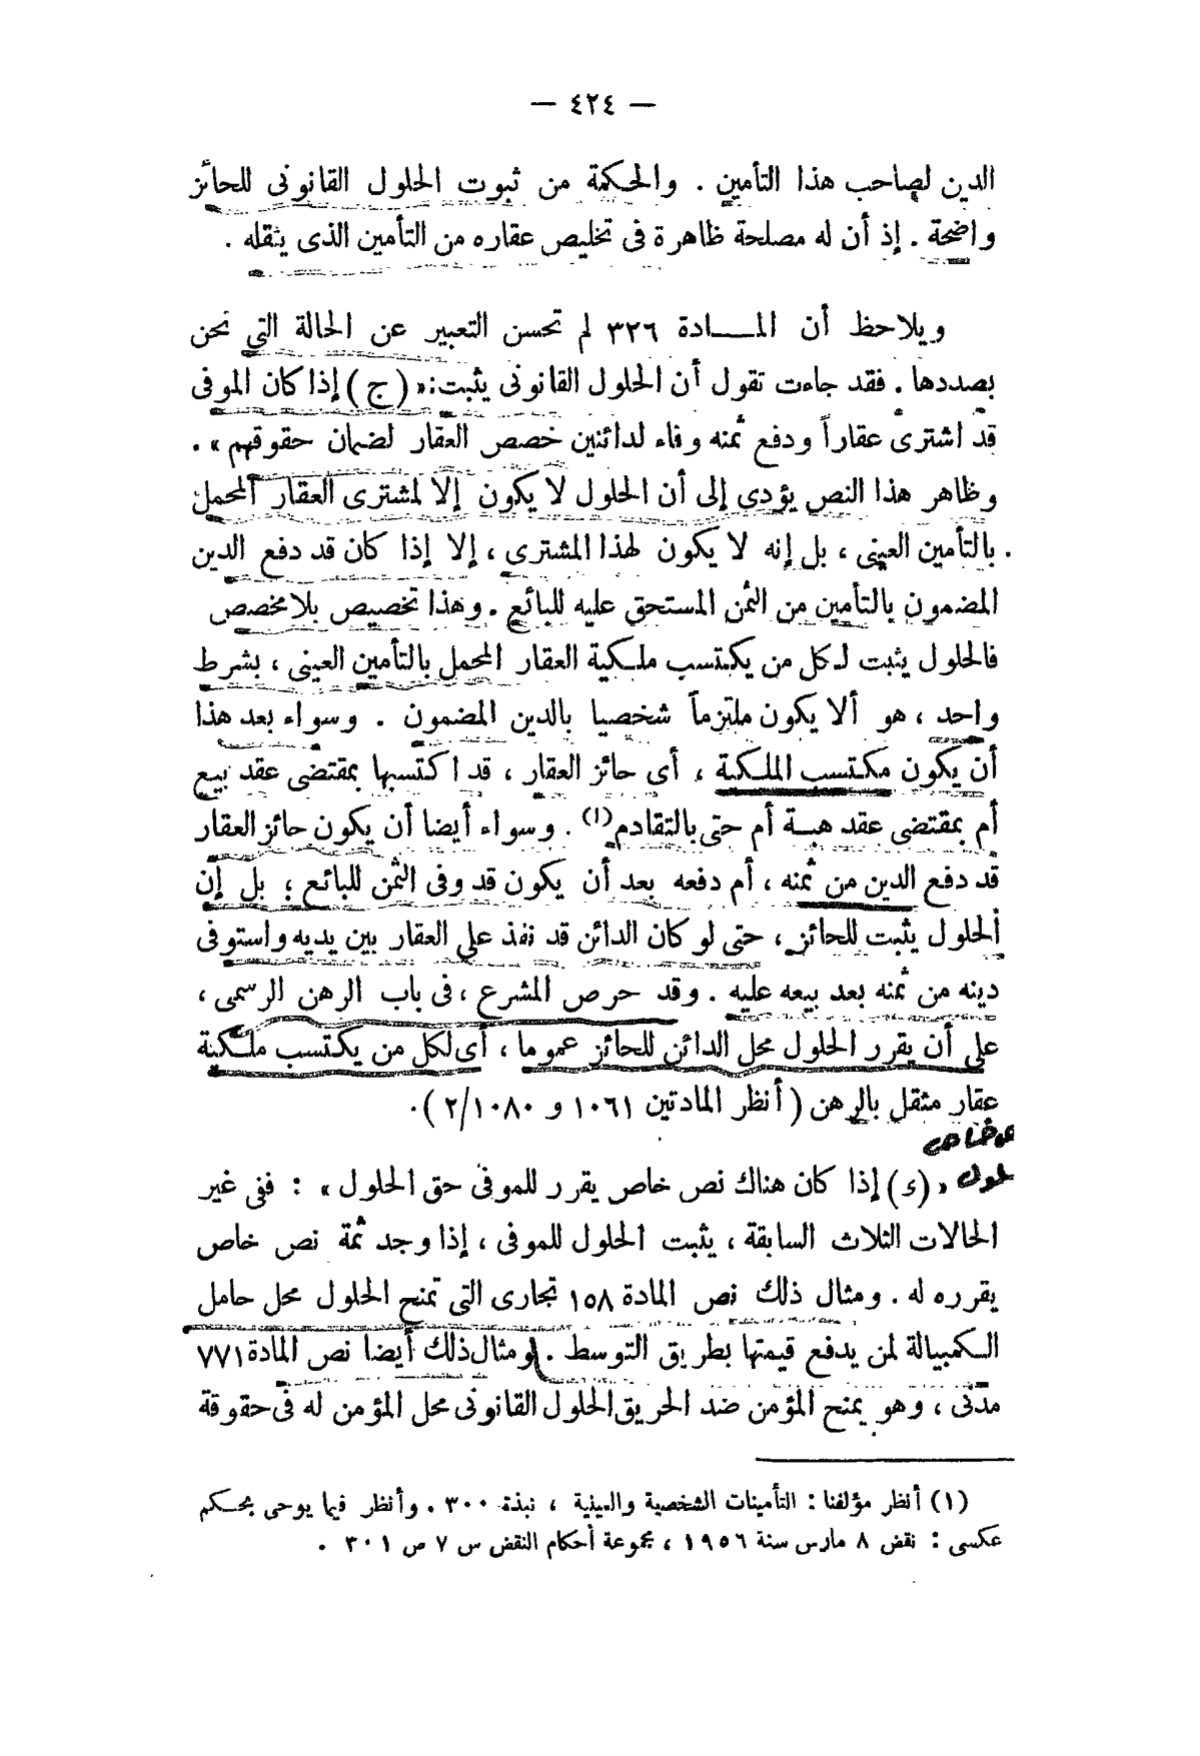 — ٤٢٤ —
الدين لصاحب هذا التأمين . والحكمة من ثبوت الحلول القانونى للحائز
واضحة . إذ أن له مصلحة ظاهرة فى تخليص عقاره من التأمين الذى يثقله .
ويلاحظ أن المــادة ٣٢٦ لم تحسن التعبير عن الحالة التي نحن
بصددها . فقد جاءت تقول أن الحلول القانونى يثبت : « ( ج ) إذا كان الموفى
قد اشترى عقاراً ودفع ثمنه وفاء لدائنين خصص العقار لضمان حقوقهم » .
وظاهر هذا النص يؤدى إلى أن الحلول لا يكون إلا لمشترى العقار المحمل
بالتأمين العينى ، بل إنه لا يكون لهذا المشترى ، إلا إذا كان قد دفع الدين
المضمون بالتأمين من الثمن المستحق عليه للبائع . وهذا تخصيص بلا مخصص
فالحلول يثبت لـكل من يكتسب ملـكية العقار المحمل بالتأمين العينى ، بشرط
واحد ، هو ألا يكون ملتزماً شخصيا بالدين المضمون . وسواء بعد هذا
أن يكون مكتسب الملـكية ، أى حائز العقار ، قد اكتسبها بمقتضى عقد بيع
أم بمقتضى عقد هبـة أم حتى بالتقادم (١) . وسواء أيضا أن يكون حائز العقار
قد دفع الدين من ثمنه ، أم دفعه بعد أن يكون قد وفى الثمن للبائع ؛ بل إن
الحلول يثبت للحائز ، حتى لو كان الدائن قد نفذ على العقار بين يديه واستوفى
دينه من ثمنه بعد بيعه عليه . وقد حرص المشرع ، فى باب الرهن الرسمى ،
على أن يقرر الحلول محل الدائن للحائز عموما ، أى لكل من يكتسب ملـكية
عقار مثقل بالرهن ( أنظر المادتين ١٠٦١ و ٢/١٠٨٠ ) .
خاص
حلول
« ( د ) إذا كان هناك نص خاص يقرر للموفى حق الحلول » : ففى غير
الحالات الثلاث السابقة ، يثبت الحلول للموفى ، إذا وجد ثمة نص خاص
يقرره له . ومثال ذلك نص المادة ١٥٨ تجارى التى تمنح الحلول محل حامل
الـكمبيالة لمن يدفع قيمتها بطريق التوسط . ومثال ذلك أيضا نص المادة ٧٧١
مدنى ، وهو يمنح المؤمن ضد الحريق الحلول القانونى محل المؤمن له فى حقوقة
(١) أنظر مؤلفنا : التأمينات الشخصية والعينية ، نبذة ٣٠٠ . وأنظر فيما يوحى بحـكم
عكسى : نقض ٨ مارس سنة ١٩٥٦ ، مجموعة أحكام النقض س ٧ ص ٣٠١ .